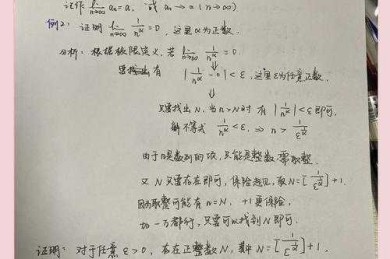 记作 lim n→∞ an=a, 或 an→a (n→∞)
例2: 证明 lim n→∞ 1/n^α = 0, 这里α为正数.
分析: 根据极限定义, 若 lim n→∞ 1/n^α = 0
需找出有 | 1/n^α - 0 | < ε, 这里ε为任意正数.
⇓
只需找出N, 当n>N时 有 | 1/n^α | < ε 即可.
解不等式 1/n^α < ε, ⇒ n > 1/ε^(1/α)
由于n是数列的项, 只能是整数 需取整.
又N只需存在即可, 保险起见, 取N=[1/ε^(1/α)]+1.
因为取整可能有n=N, +1更保险,
加一万都行, 只要可以找到N即可.
证明: 对于任意 ε>0, 存在正整数N, 其中 N=[1/ε^(1/α)]+1.